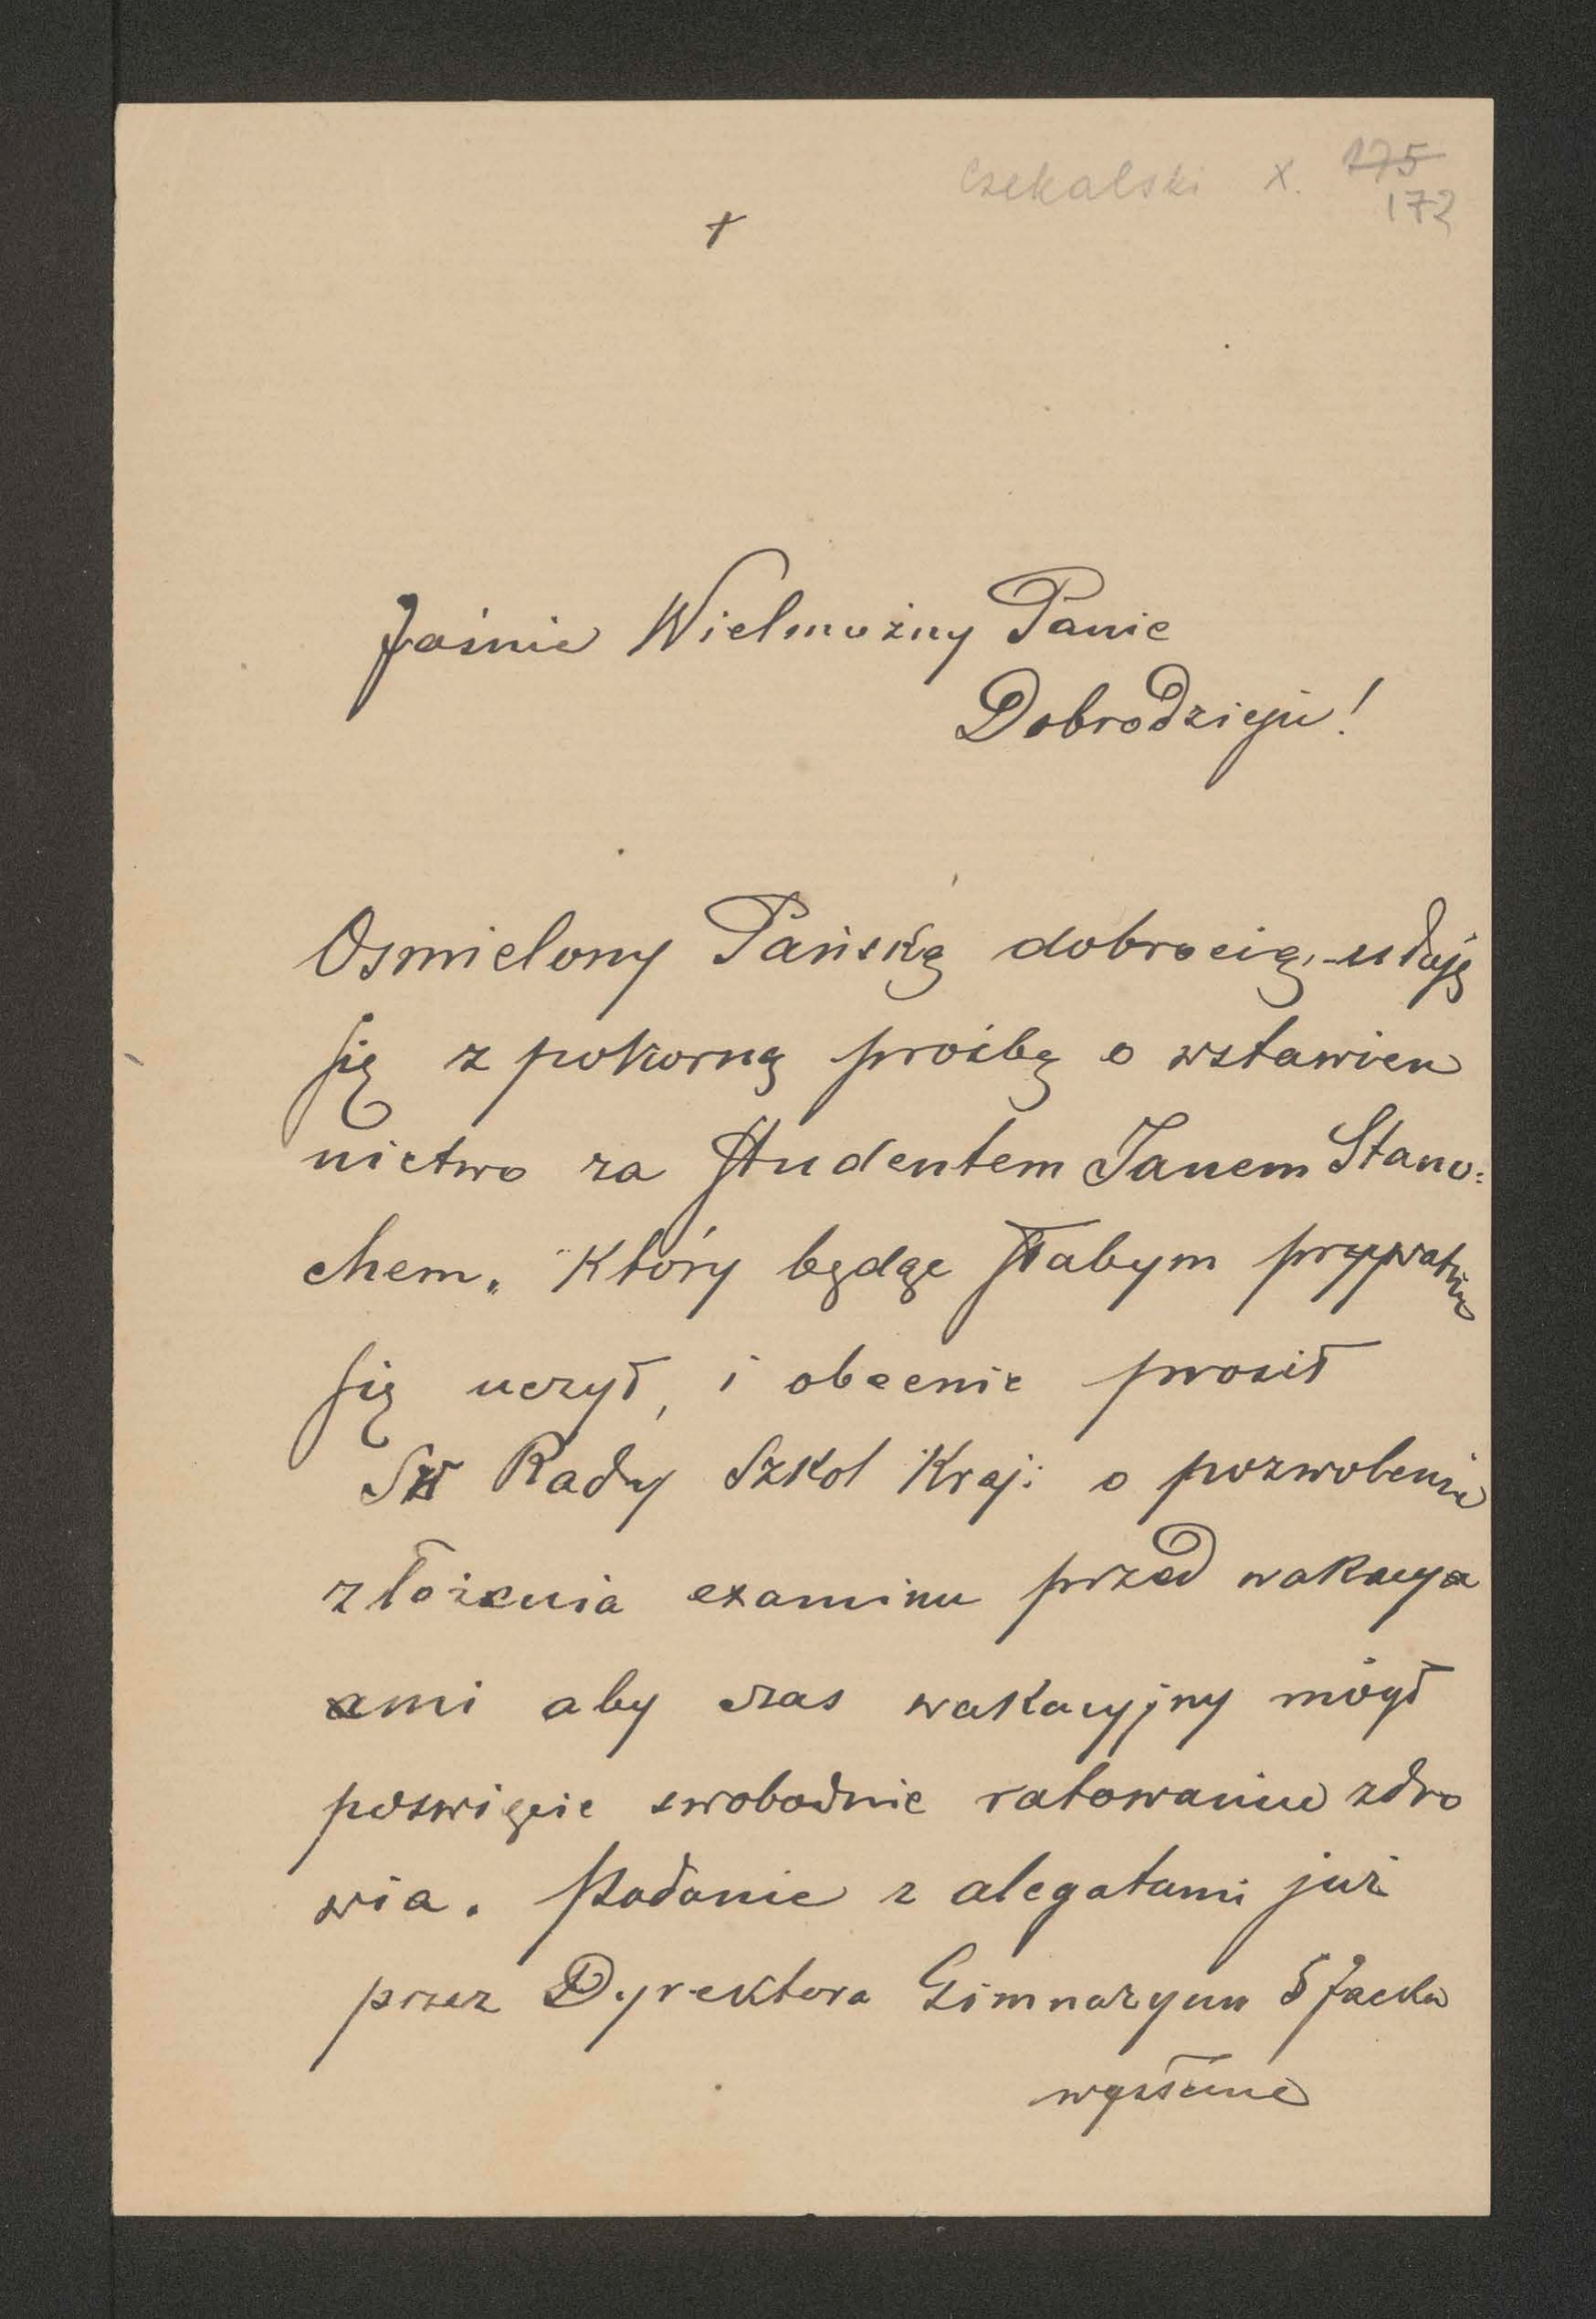 Czekalski X. 175
172
+
Jaśnie Wielmożny Panie
Dobrodzieju!
Osmielony Pańską dobrocią, udaję
się z pokorną prośbą o wstawien
nictwo za Studentem Janem Stano=
chem. Który będąc słabym prywatnie
się uczył, i obecnie prosił
Rady Szkol Kraj: o pozwolenie
złożenia examinu przed wakacya
ami aby czas wakacyjny mógł
poswięcić swobodnie ratowaniu zdro
wia. Podanie z alegatami już
przez Dyrektora Gimnazyum S Jacka
wysłane